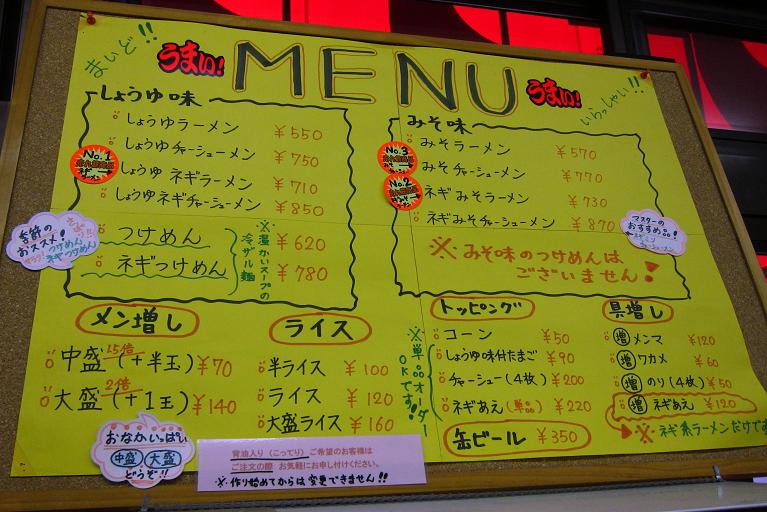 まいど!!
うまい!
MENU
うまい!
いらっしゃい!!
しょうゆ味
しょうゆラーメン ¥550
しょうゆチャーシューメン ¥750
No.1
しょうゆネギラーメン ¥710
しょうゆネギチャーシューメン ¥850
季節の
おススメ!
つけめん
ネギつけめん
つけめん ¥620
ネギつけめん ¥780
※温かいスープの
冷ザル麺
みそ味
みそラーメン ¥570
No.3
みそチャーシューメン ¥770
No.2
ネギみそラーメン ¥730
ネギみそチャーシューメン ¥870
マスターの
おすすめ品!
ネギみそ
チャーシューメン
※みそ味のつけめんは
ございません!
メン増し
中盛 1.5倍 (+半玉) ¥70
大盛 2倍 (+1玉) ¥140
おなかいっぱい
中盛 大盛
どうぞ!!
ライス
半ライス ¥100
ライス ¥120
大盛ライス ¥160
トッピング
コーン ¥50
しょうゆ味付たまご ¥90
チャーシュー(4枚) ¥200
ネギあえ(単品) ¥220
※単品オーダー
OKです!
缶ビール ¥350
具増し
増 メンマ ¥120
増 ワカメ ¥60
増 のり(4枚) ¥50
増 ネギあえ ¥120
※ネギ系ラーメンだけです
背油入り(こってり)ご希望のお客様は
ご注文の際 お気軽にお申し付けください。
※作り始めてからは変更できません!!